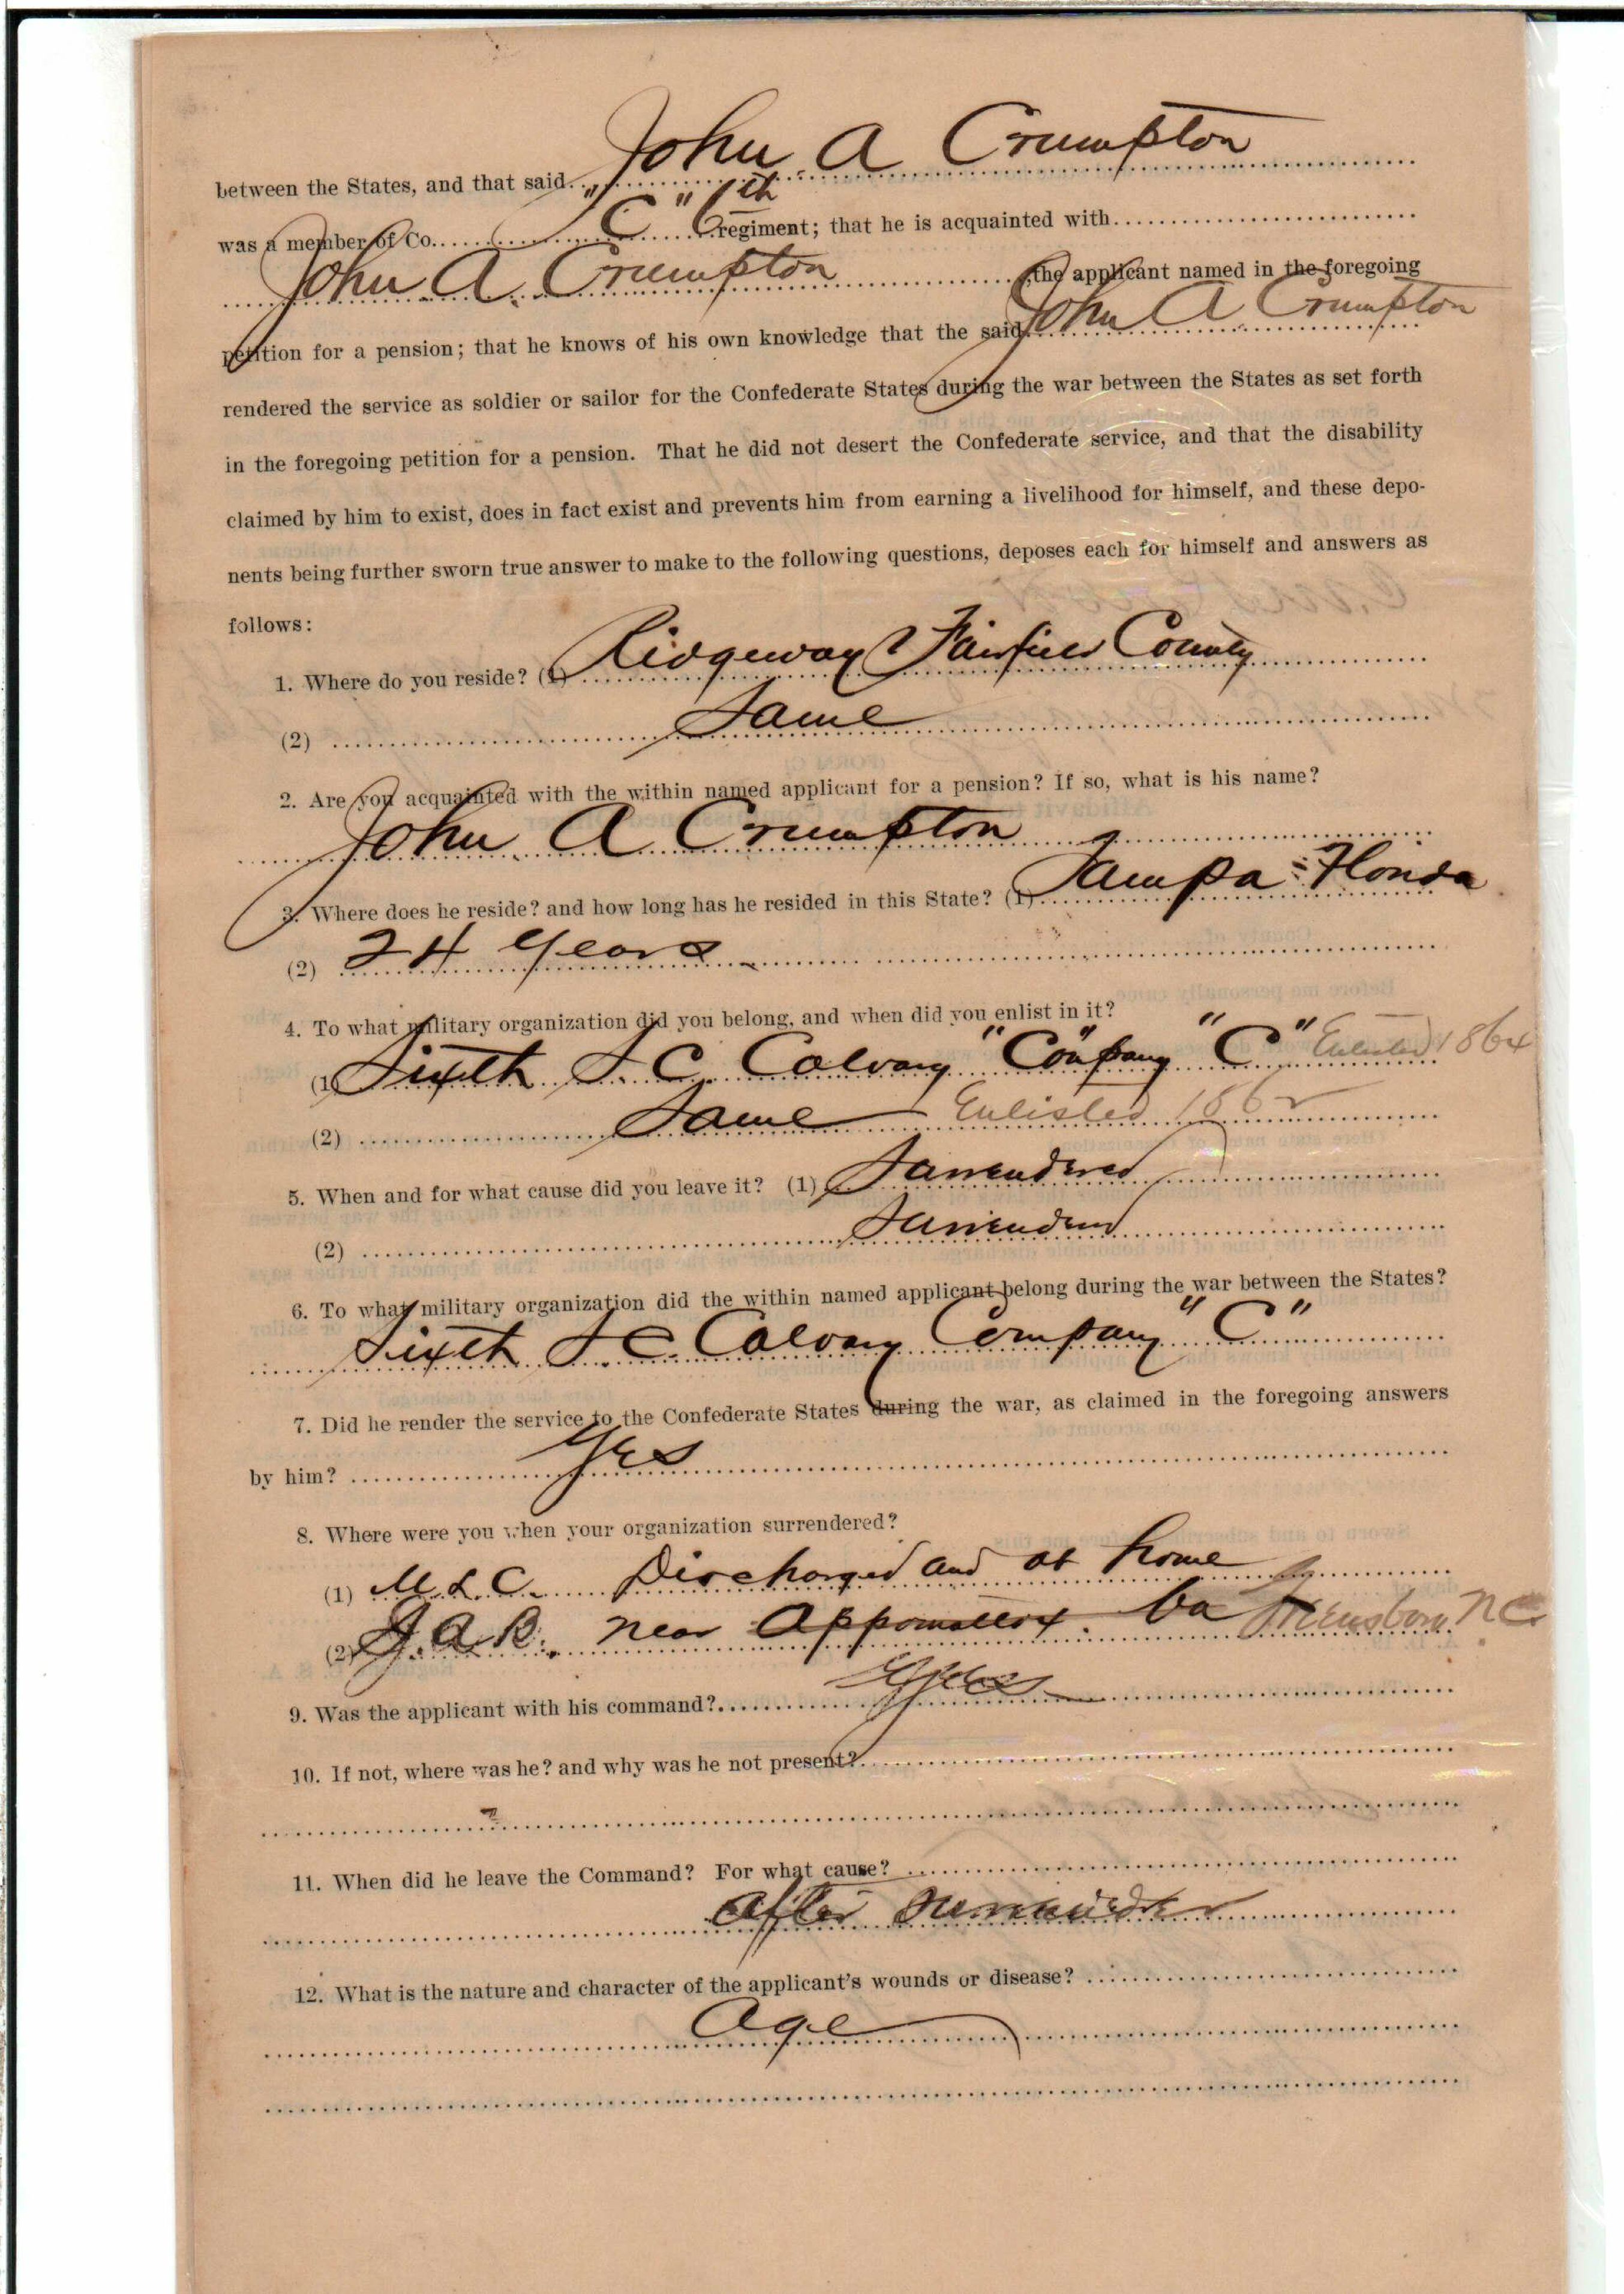 between the States, and that said John A Crumpton
was a member of Co. "C" 6th regiment; that he is acquainted with
John A. Crumpton the applicant named in the foregoing
petition for a pension; that he knows of his own knowledge that the said John A Crumpton
rendered the service as soldier or sailor for the Confederate States during the war between the States as set forth
in the foregoing petition for a pension. That he did not desert the Confederate service, and that the disability
claimed by him to exist, does in fact exist and prevents him from earning a livelihood for himself, and these depo-
nents being further sworn true answer to make to the following questions, deposes each for himself and answers as
follows:
1. Where do you reside? (1) Ridgeway Fairfield County
(2) Same
2. Are you acquainted with the within named applicant for a pension? If so, what is his name?
John A Crumpton
3. Where does he reside? and how long has he resided in this State? (1) Tampa = Florida
(2) 24 Years
4. To what military organization did you belong, and when did you enlist in it?
(1) Sixth S. C. Calvary "Company "C" Enlisted 1864
(2) Same Enlisted 1862
5. When and for what cause did you leave it? (1) Surrendered
(2) Surrendered
6. To what military organization did the within named applicant belong during the war between the States?
Sixth S. C. Calvary Company "C"
7. Did he render the service to the Confederate States during the war, as claimed in the foregoing answers
by him? Yes
8. Where were you when your organization surrendered?
(1) M L C. Discharged and at home
(2) J. A. R. near Appomattox. Va Greensboro N C.
9. Was the applicant with his command? Yes
10. If not, where was he? and why was he not present?
11. When did he leave the Command? For what cause?
after surrender
12. What is the nature and character of the applicant's wounds or disease?
Age